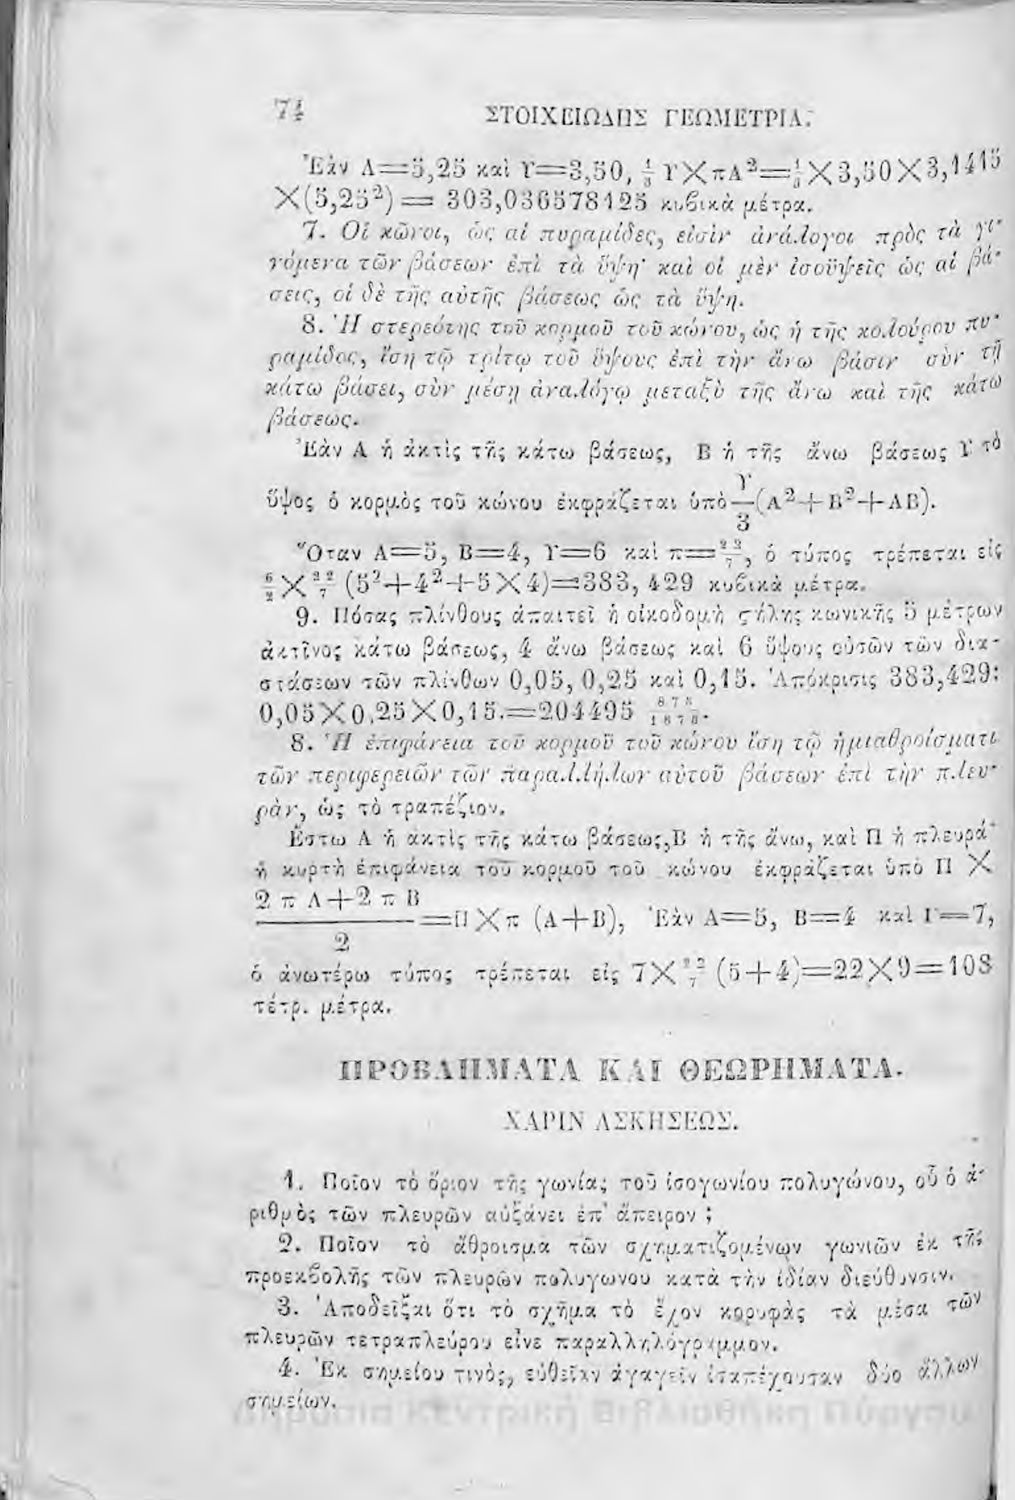 74 ΣΤΟΙΧΕΙΩΔΗΣ ΓΕΩΜΕΤΡΙΑ.
Ἐὰν Α=5,25 καὶ Υ=3,50, 1/3 ΥΧπΑ²=1/3Χ3,50Χ3,1415
Χ(5,25²)= 303,036578125 κυβικὰ μέτρα.
7. Οἱ κῶνοι, ὡς αἱ πυραμίδες, εἰσὶν ἀνάλογοι πρὸς τὰ γι-
νόμενα τῶν βάσεων ἐπὶ τὰ ὕψη· καὶ οἱ μὲν ἰσοϋψεῖς ὡς αἱ βά-
σεις, οἱ δὲ τῆς αὐτῆς βάσεως ὡς τὰ ὕψη.
8. Ἡ στερεότης τοῦ κορμοῦ τοῦ κώνου, ὡς ἡ τῆς κολούρου πυ-
ραμίδος, ἴση τῷ τρίτῳ τοῦ ὕψους ἐπὶ τὴν ἄνω βάσιν σὺν τῇ
κάτω βάσει, σὺν μέσῃ ἀναλόγῳ μεταξὺ τῆς ἄνω καὶ τῆς κάτω
βάσεως.
Ἐὰν Α ἡ ἀκτὶς τῆς κάτω βάσεως, Β ἡ τῆς ἄνω βάσεως Υ τὸ
ὕψος ὁ κορμὸς τοῦ κώνου ἐκφράζεται ὑπὸ Υ/3 (Α²+Β²+ΑΒ).
Ὅταν Α=5, Β=4, Υ=6 καὶ π=22/7, ὁ τύπος τρέπεται εἰς
6/2Χ22/7 (5²+4²+5Χ4)=383, 429 κυβικὰ μέτρα.
9. Πόσας πλίνθους ἀπαιτεῖ ἡ οἰκοδομὴ ϛήλης κωνικῆς 5 μέτρων
ἀκτῖνος κάτω βάσεως, 4 ἄνω βάσεως καὶ 6 ὕψους οὐσῶν τῶν δια-
στάσεων τῶν πλίνθων 0,05, 0,25 καὶ 0,15. Ἀπόκρισις 383,429:
0,05Χ0,25Χ0,15.=204495 875/1875.
8. Ἡ ἐπιφάνεια τοῦ κορμοῦ τοῦ κώνου ἴση τῷ ἡμιαθροίσματι
τῶν περιφερειῶν τῶν παραλλήλων αὐτοῦ βάσεων ἐπὶ τὴν πλευ-
ρὰν, ὡς τὸ τραπέζιον.
Ἔστω Α ἡ ἀκτὶς τῆς κάτω βάσεως,Β ἡ τῆς ἄνω, καὶ Π ἡ πλευρά·
ἡ κυρτὴ ἐπιφάνεια τοῦ κορμοῦ τοῦ κώνου ἐκφράζεται ὑπὸ Π Χ
2 π Α+2 π Β
/2 =ΠΧπ (Α+Β), Ἐὰν Α=5, Β=4 καὶ Γ=7,
ὁ ἀνωτέρω τύπος τρέπεται εἰς 7Χ22/7 (5+4)=22Χ9=108
τέτρ. μέτρα.
ΠΡΟΒΛΗΜΑΤΑ ΚΑΙ ΘΕΩΡΗΜΑΤΑ.
ΧΑΡΙΝ ΑΣΚΗΣΕΩΣ.
1. Ποῖον τὸ ὅριον τῆς γωνίας τοῦ ἰσογωνίου πολυγώνου, οὗ ὁ ἀ-
ριθμὸς τῶν πλευρῶν αὐξάνει ἐπ' ἄπειρον ;
2. Ποῖον τὸ ἄθροισμα τῶν σχηματιζομένων γωνιῶν ἐκ τῆς
προεκβολῆς τῶν πλευρῶν πολυγωνου κατὰ τὴν ἰδίαν διεύθυνσιν.
3. Ἀποδεῖξαι ὅτι τὸ σχῆμα τὸ ἔχον κορυφὰς τὰ μέσα τῶν
πλευρῶν τετραπλεύρου εἶνε παραλληλόγραμμον.
4. Ἐκ σημείου τινὸς, εὐθεῖαν ἀγαγεῖν ἰσαπέχουσαν δύο ἄλλων
σημείων.
Δημόσια Κεντρική Βιβλιοθήκη Πύργου